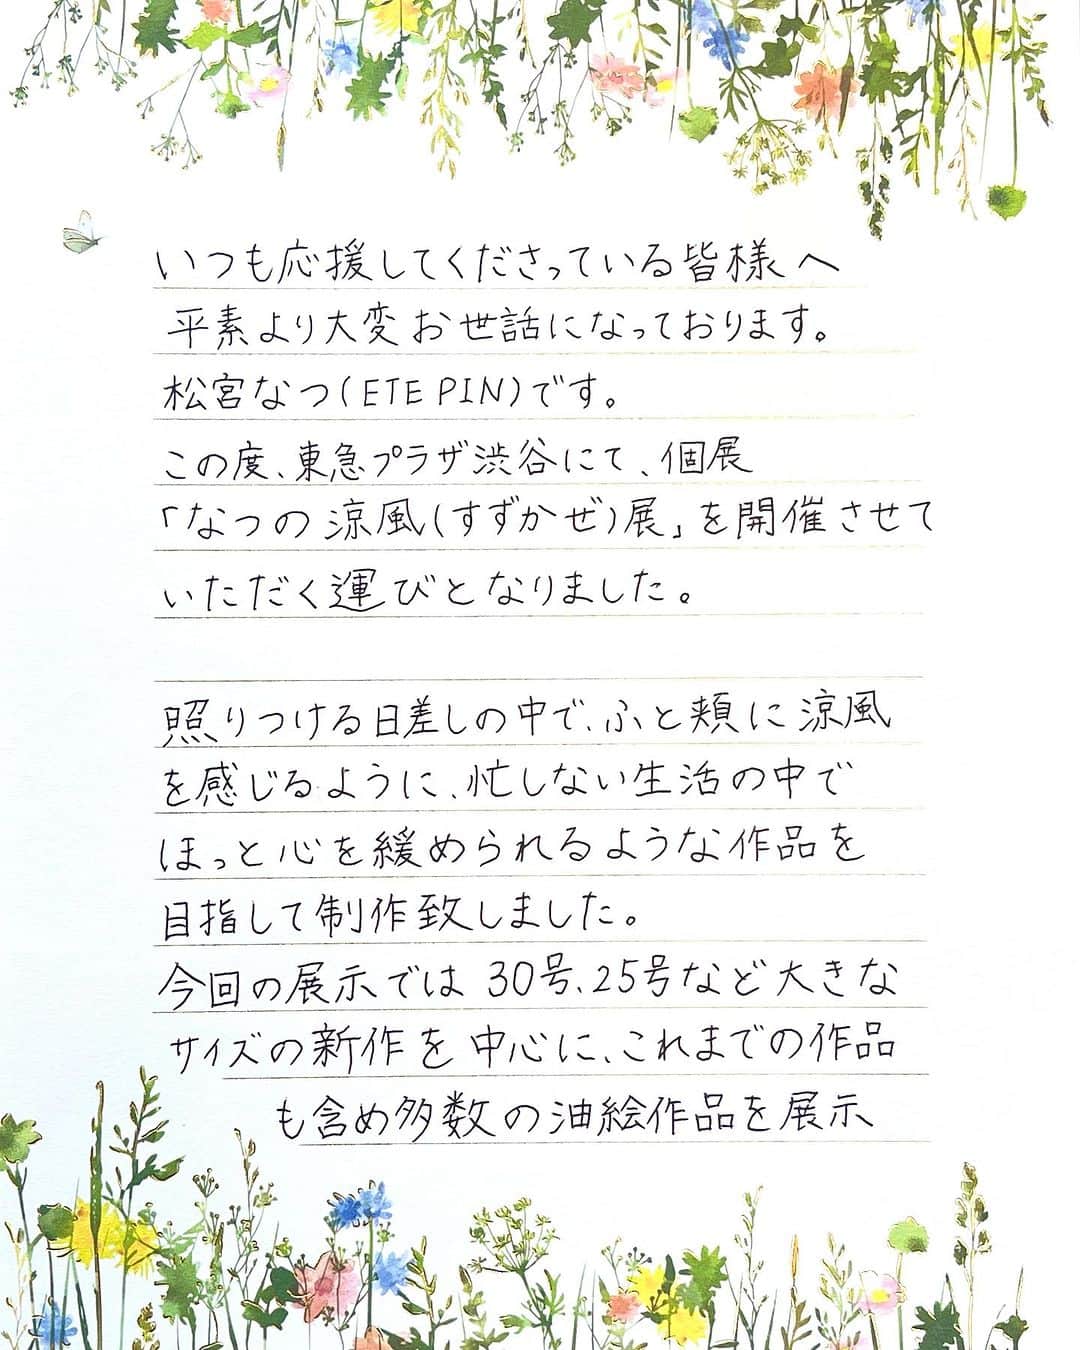 いつも応援してくださっている皆様へ
平素より大変お世話になっております。
松宮なつ(ETE PIN)です。
この度、東急プラザ渋谷にて、個展
「なつの涼風(すずかぜ)展」を開催させて
いただく運びとなりました。
照りつける日差しの中で、ふと頬に涼風
を感じるように、忙しない生活の中で
ほっと心を緩められるような作品を
目指して制作致しました。
今回の展示では 30号、25号など大きな
サイズの新作を中心に、これまでの作品
も含め多数の油絵作品を展示